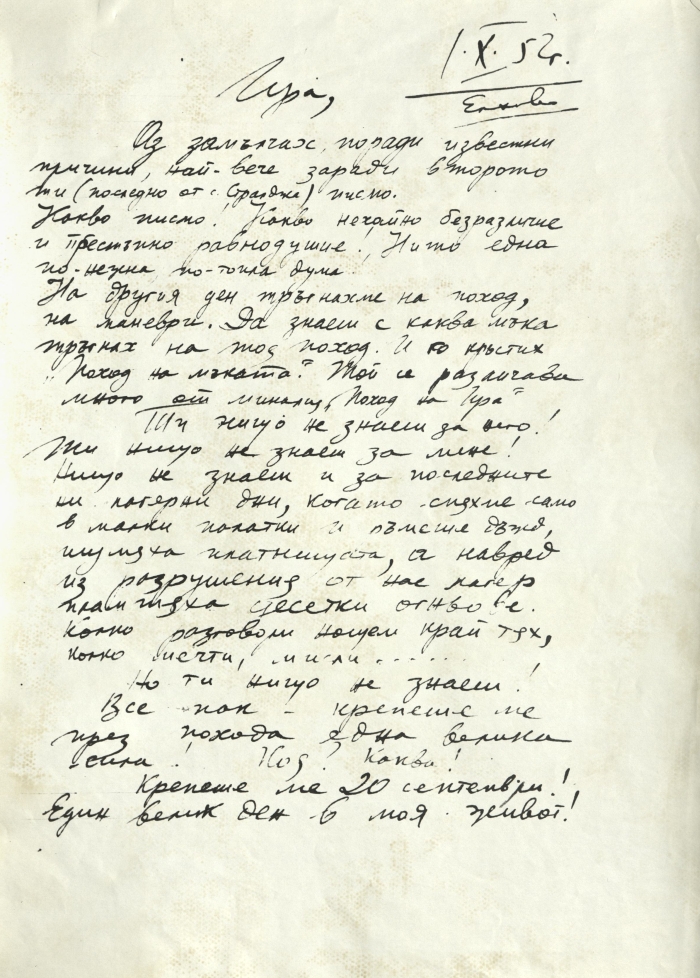 1.X.52г.
Елхово
Гера,
Аз замълчах поради известни
причини, най-вече заради второто
ти (последно от с. Странджа) писмо.
Какво писмо! Какво нехайно безразличие
и престъпно равнодушие! Нито една
по-нежна по-топла дума.
На другия ден тръгнахме на поход,
на маневри. Да знаеш с каква мъка
тръгнах на тоя поход. И го кръстих
„Поход на мъката". Той се различава
много от миналия „Поход на Гера"
Ти нищо не знаеш за него!
Ти нищо не знаеш за мене!
Нищо не знаеш и за последните
ни лагерни дни, когато спяхме само
в малки палатки и ръмеше дъжд,
шумяха платнищата, а навред
из разрушения от нас лагер
пламтяха десетки огньове.
Колко разговори нощем край тях,
колко мечти, мисли ......
Но ти нищо не знаеш!
Все пак - крепеше ме
през похода една велика
сила! Коя? Каква!
Крепеше ме 20 септември!
Един велик ден в моя живот!